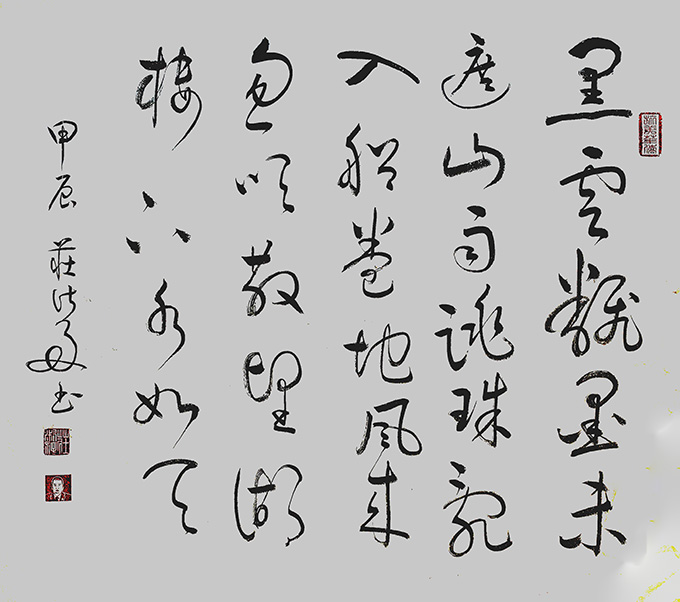 黑雲翻墨未
遮山雨跳珠亂
入船卷地風来
忽吹散望湖
樓下水如天
甲辰 莊 书